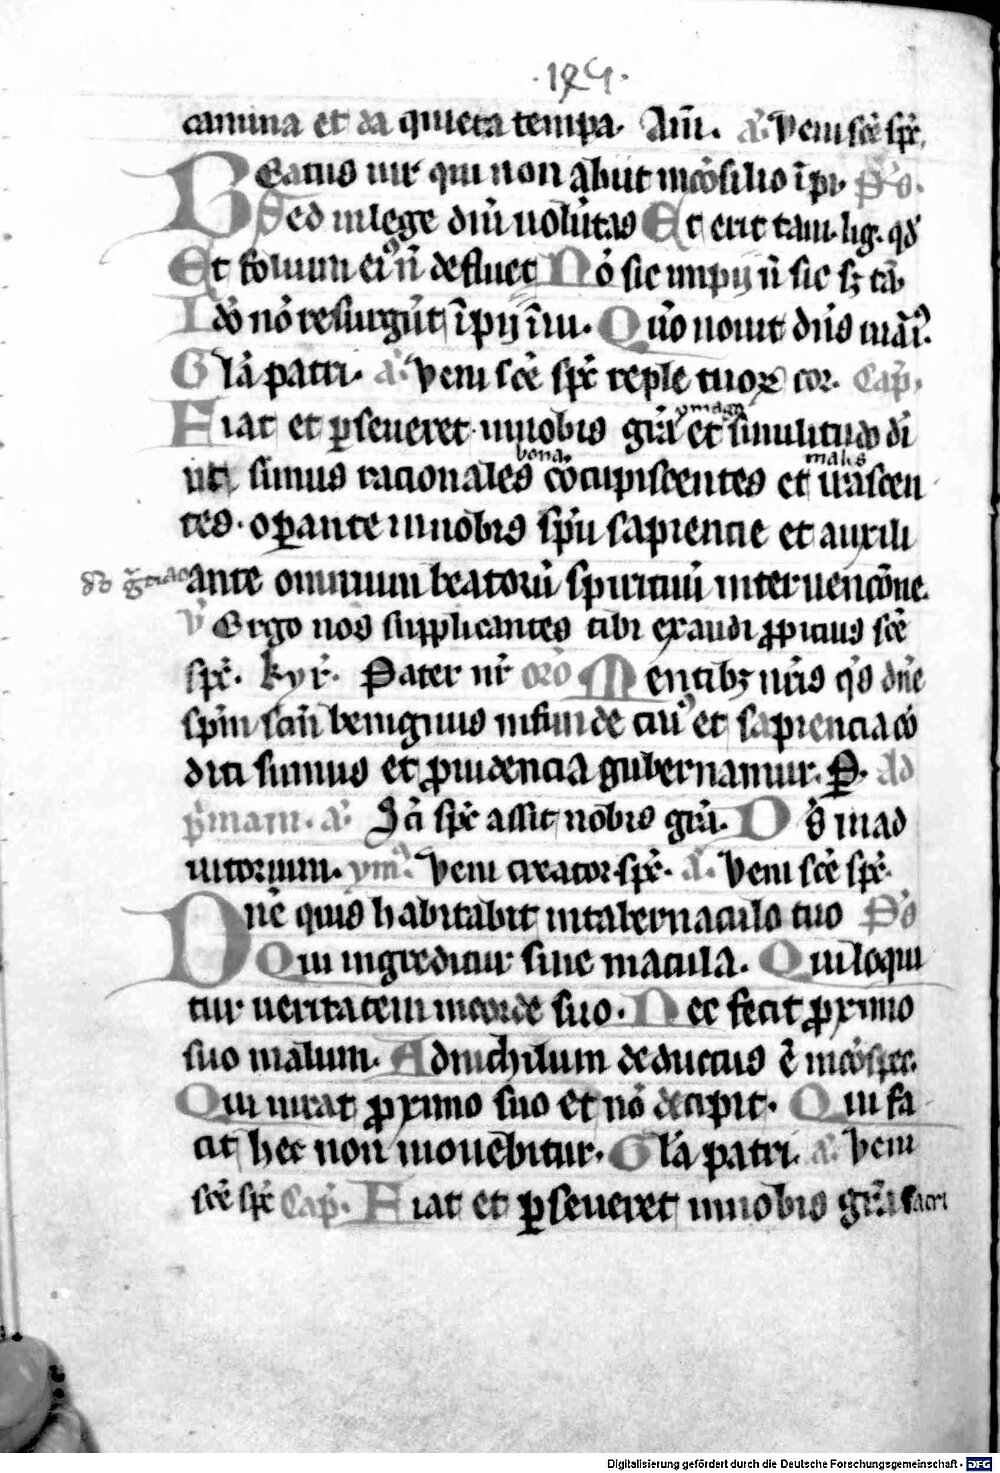 ·124·
camina et da quieta tempa. Am̄. a. Veni sc̄e sp̄c.
Beatus uir qui non abiit incōsilio īpi. Ps.
Sed in lege dn̄i uolūtas Et erit tam. lig. qd
Et folium eiꝰ n̄ defluet Nō sic impij n̄ sic sꝫ tā
Idō nō resurgūt īpij ī iu. Qm̄ nouit dn̄s uiā iꝰ.
Glā patri. a. Veni sc̄e sp̄c reple tuoꝝ cor. Cap̄.
Fiat et ꝑseueret innobis gr̄a et similitudo di
ymago
ut simus racionales cōcupiscentes et irascen
bona. malis
tes. oꝑante innobis sp̄u sapiencie et auxili
ante omnium beatorū spirituū interuencōne.
V Ergo nos supplicantes tibi exaudi ꝓpicius sc̄e
sp̄c. kyr̄. Pater nr̄ oro Mentibꝫ nr̄is qs dn̄e
spm̄ scm̄ benignus infunde cuiꝰ et sapiencia cō
diti sumus et ꝓuidencia gubernamur. P. Ad
p̄mam. a. Sc̄i sp̄c assit nobis gr̄a. Ds in ad
iutorium. ym̄. Veni creator sp̄c. a. Veni sc̄e sp̄c.
Dn̄e quis habitabit intabernaculo tuo Ps
Qui ingreditur sine macula. Qui loqui
tur ueritatem incorde suo. Nec fecit ꝓximo
suo malum. Adnichilum deductus ē incōspec.
Qui iurat ꝓximo suo et nō decipit. Qui fa
cit hec non mouebitur. Glā patri. a. Veni
sc̄e sp̄c Cap̄. Fiat et ꝑseueret innobis gr̄a sacri
Digitalisierung gefördert durch die Deutsche Forschungsgemeinschaft - DFG